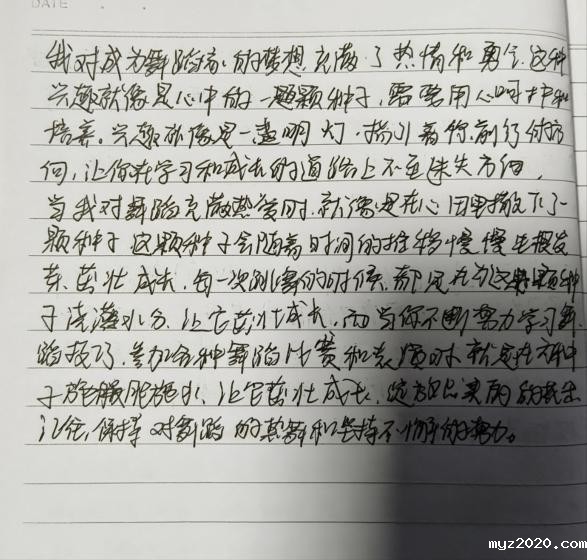 DATE
我对成为舞蹈家的梦想充满了热情和勇气，这种
兴趣就像是心中的一颗颗种子，需要用心呵护和
培养。兴趣就像是一盏明灯，指引着你前行的方
向，让你在学习和成长的道路上不至迷失方向，
当我对舞蹈充满热爱时，就像是在心田里撒下了一
颗种子 这颗种子会随着时间的推移慢慢生根发
芽、茁壮成长，每一次跳舞的时候，都是在为这颗种
子浇灌水分，让它茁壮成长，而当你不断努力学习舞
蹈技巧，参加各种舞蹈比赛和表演时，就是在
子施肥施水，让它茁壮成长，
记住，保持对舞蹈的热爱和坚持不懈的努力。
myz2020.com